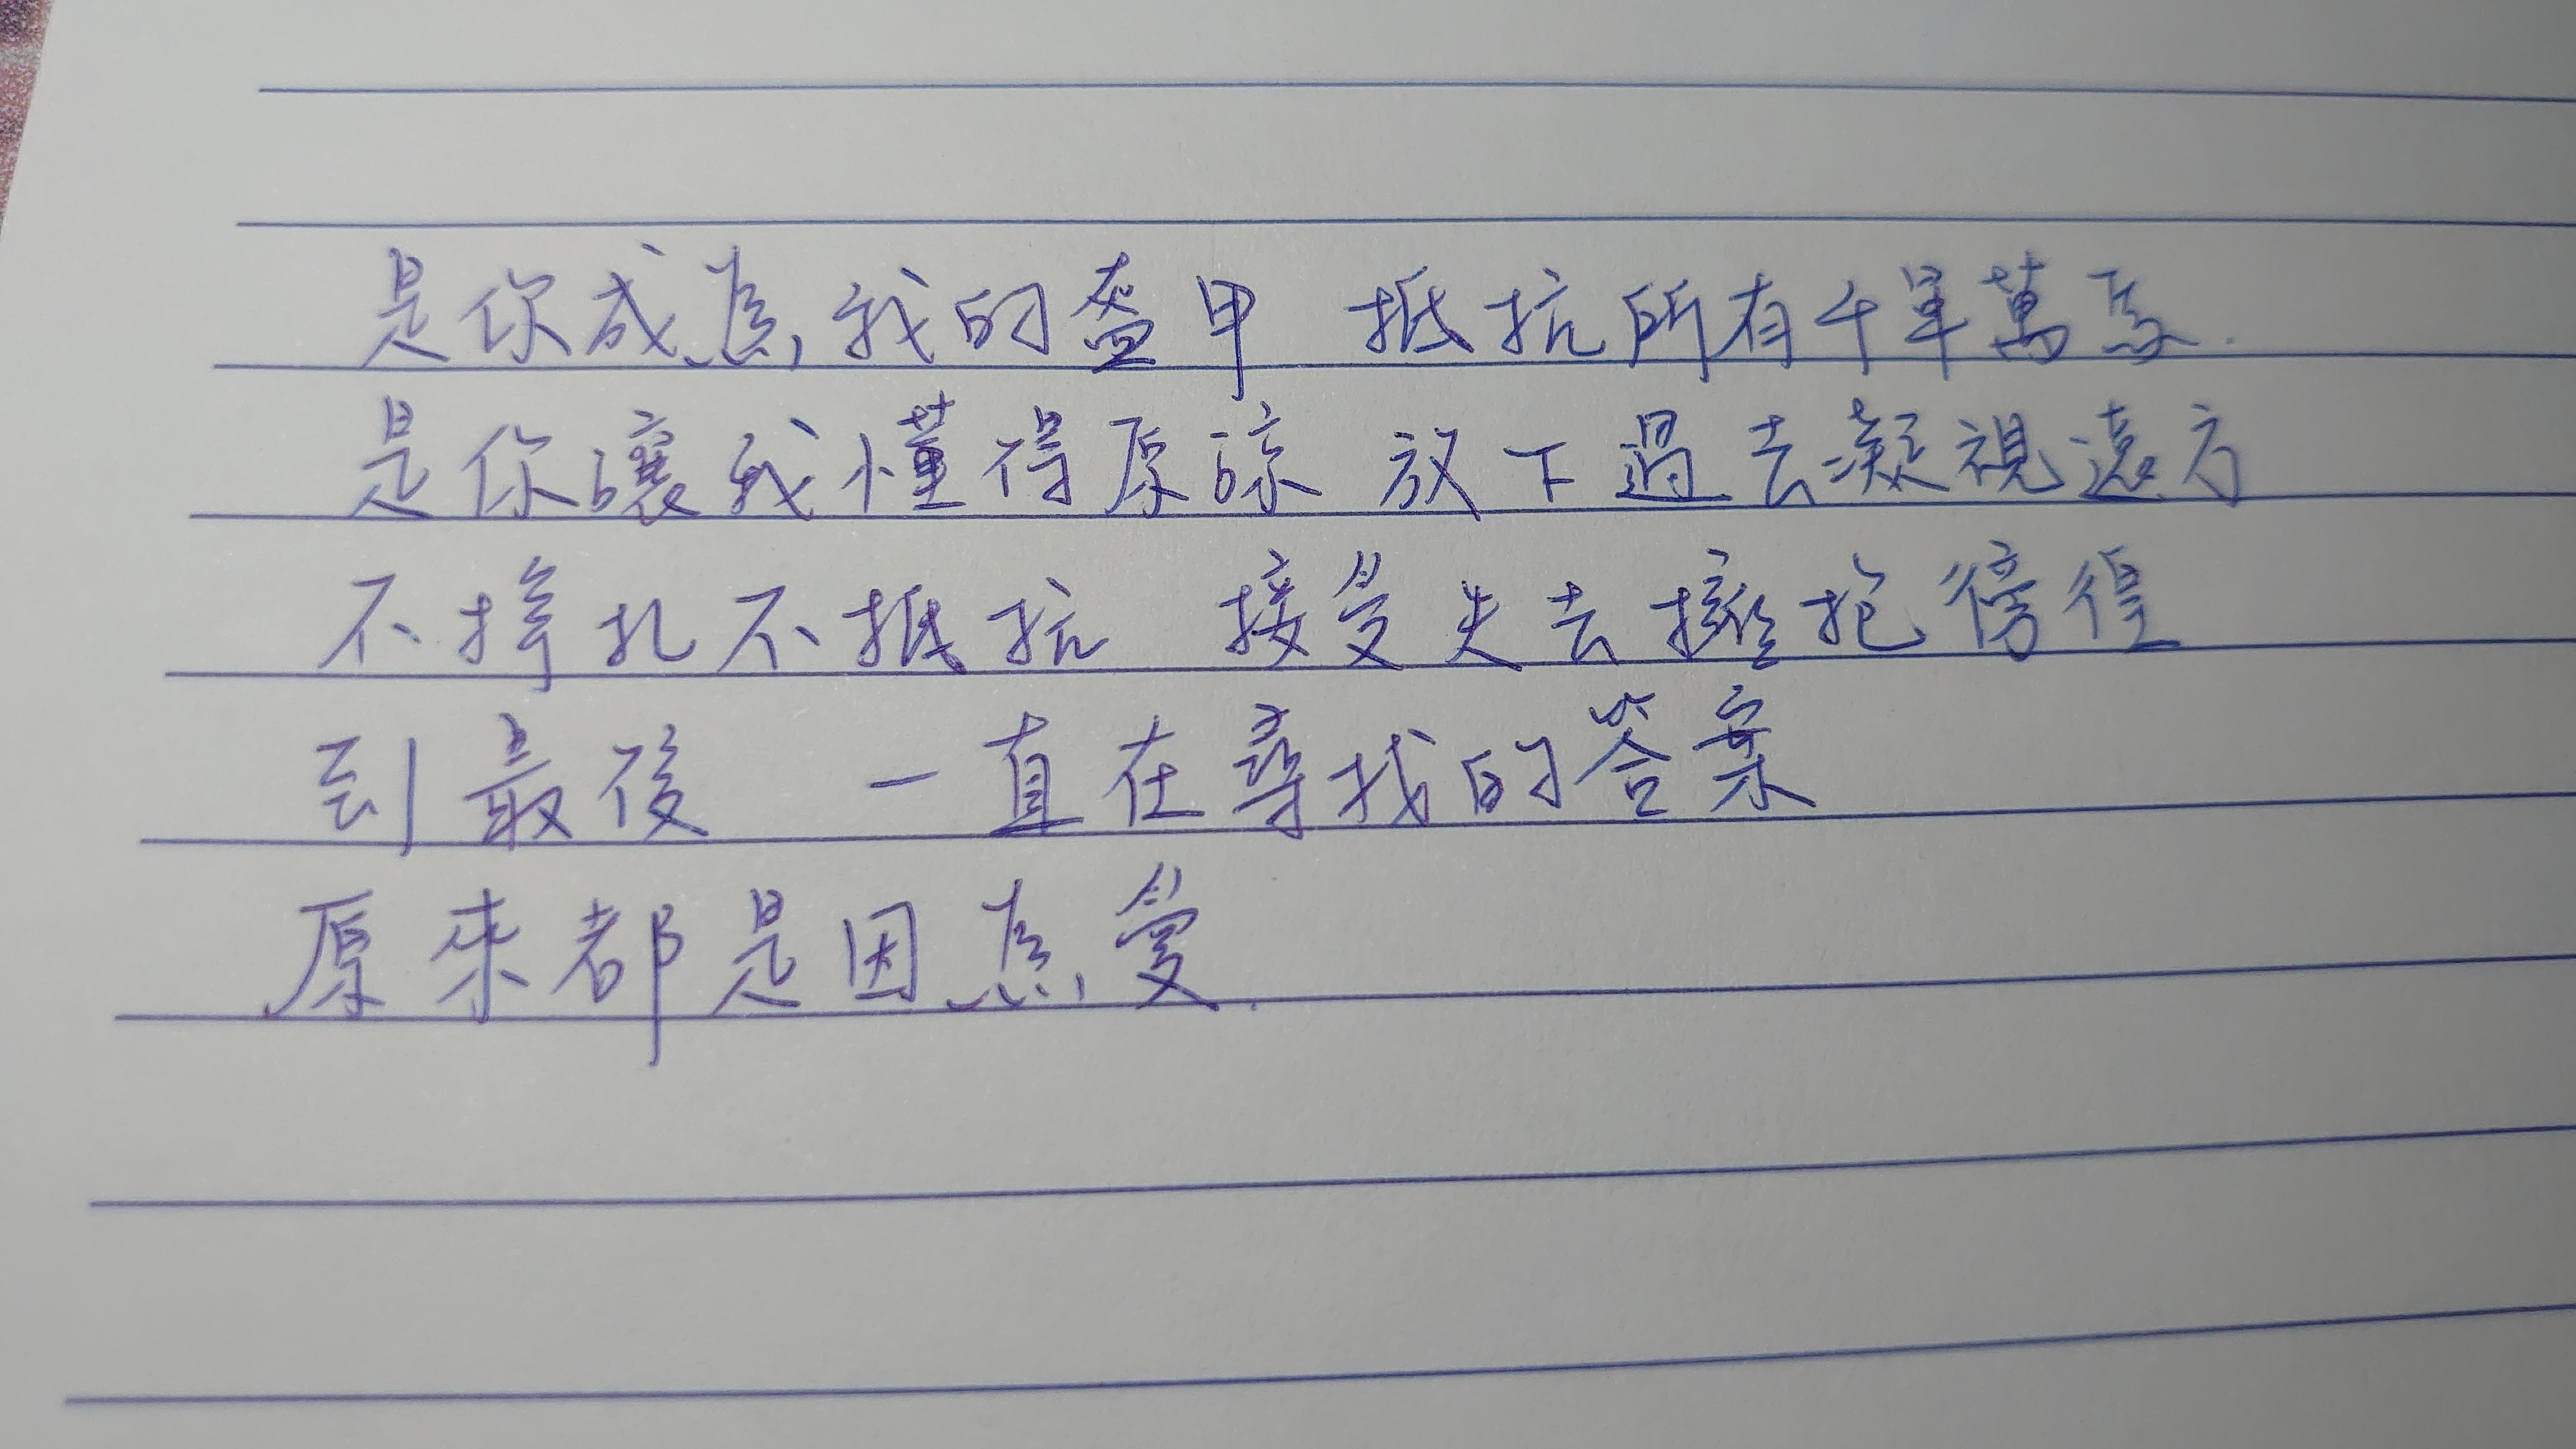 是你成為我的盔甲 抵抗所有千軍萬馬.
是你讓我懂得原諒 放下過去凝視遠方
不掙扎不抵抗 接受失去擁抱徬徨
到最後 一直在尋找的答案
原來都是因為愛.